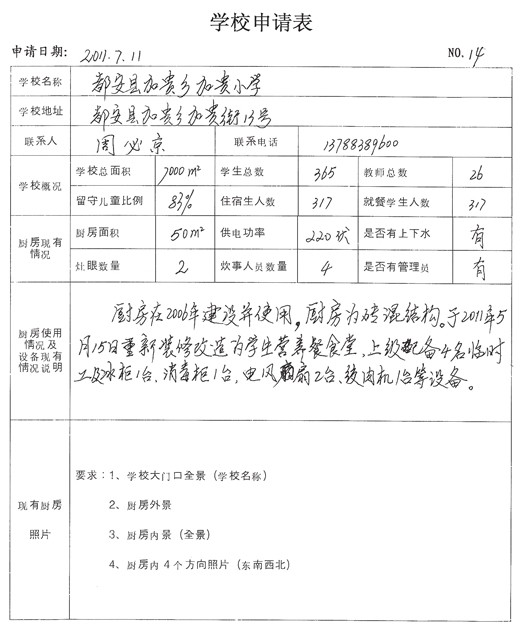 学校申请表
申请日期: 2011.7.11 NO.14
学校名称 都安县加贵乡加贵小学
学校地址 都安县加贵乡加贵街13号
联系人 周必京 联系电话 13788389600
学校概况
学校总面积 7000m² 学生总数 365 教师总数 26
留守儿童比例 83% 住宿生人数 317 就餐学生人数 317
厨房现有
情况
厨房面积 50m² 供电功率 220伏 是否有上下水 有
灶眼数量 2 炊事人员数量 4 是否有管理员 有
厨房使用
情况及
设备现有
情况说明
厨房在2006年建设并使用,厨房为砖混结构。于2011年5
月15日重新装修改造为学生营养餐食堂,上级配备4名临时
工及冰柜1台、消毒柜1台,电风扇2台、绞肉机1台等设备。
现有厨房
照片
要求:1、学校大门口全景(学校名称)
2、厨房外景
3、厨房内景(全景)
4、厨房内4个方向照片(东南西北)